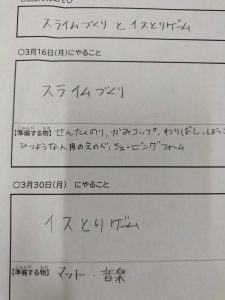 スライムづくり と イスとりゲーム
○3月16日(月)にやること
スライムづくり
【準備する物】せんたくのり、かみコップ、わりばし、
ひつような人 用のえのぐ、シェービングフォーム
○3月30日(月) にやること
イスとりゲーム
【準備する物】マット・音楽